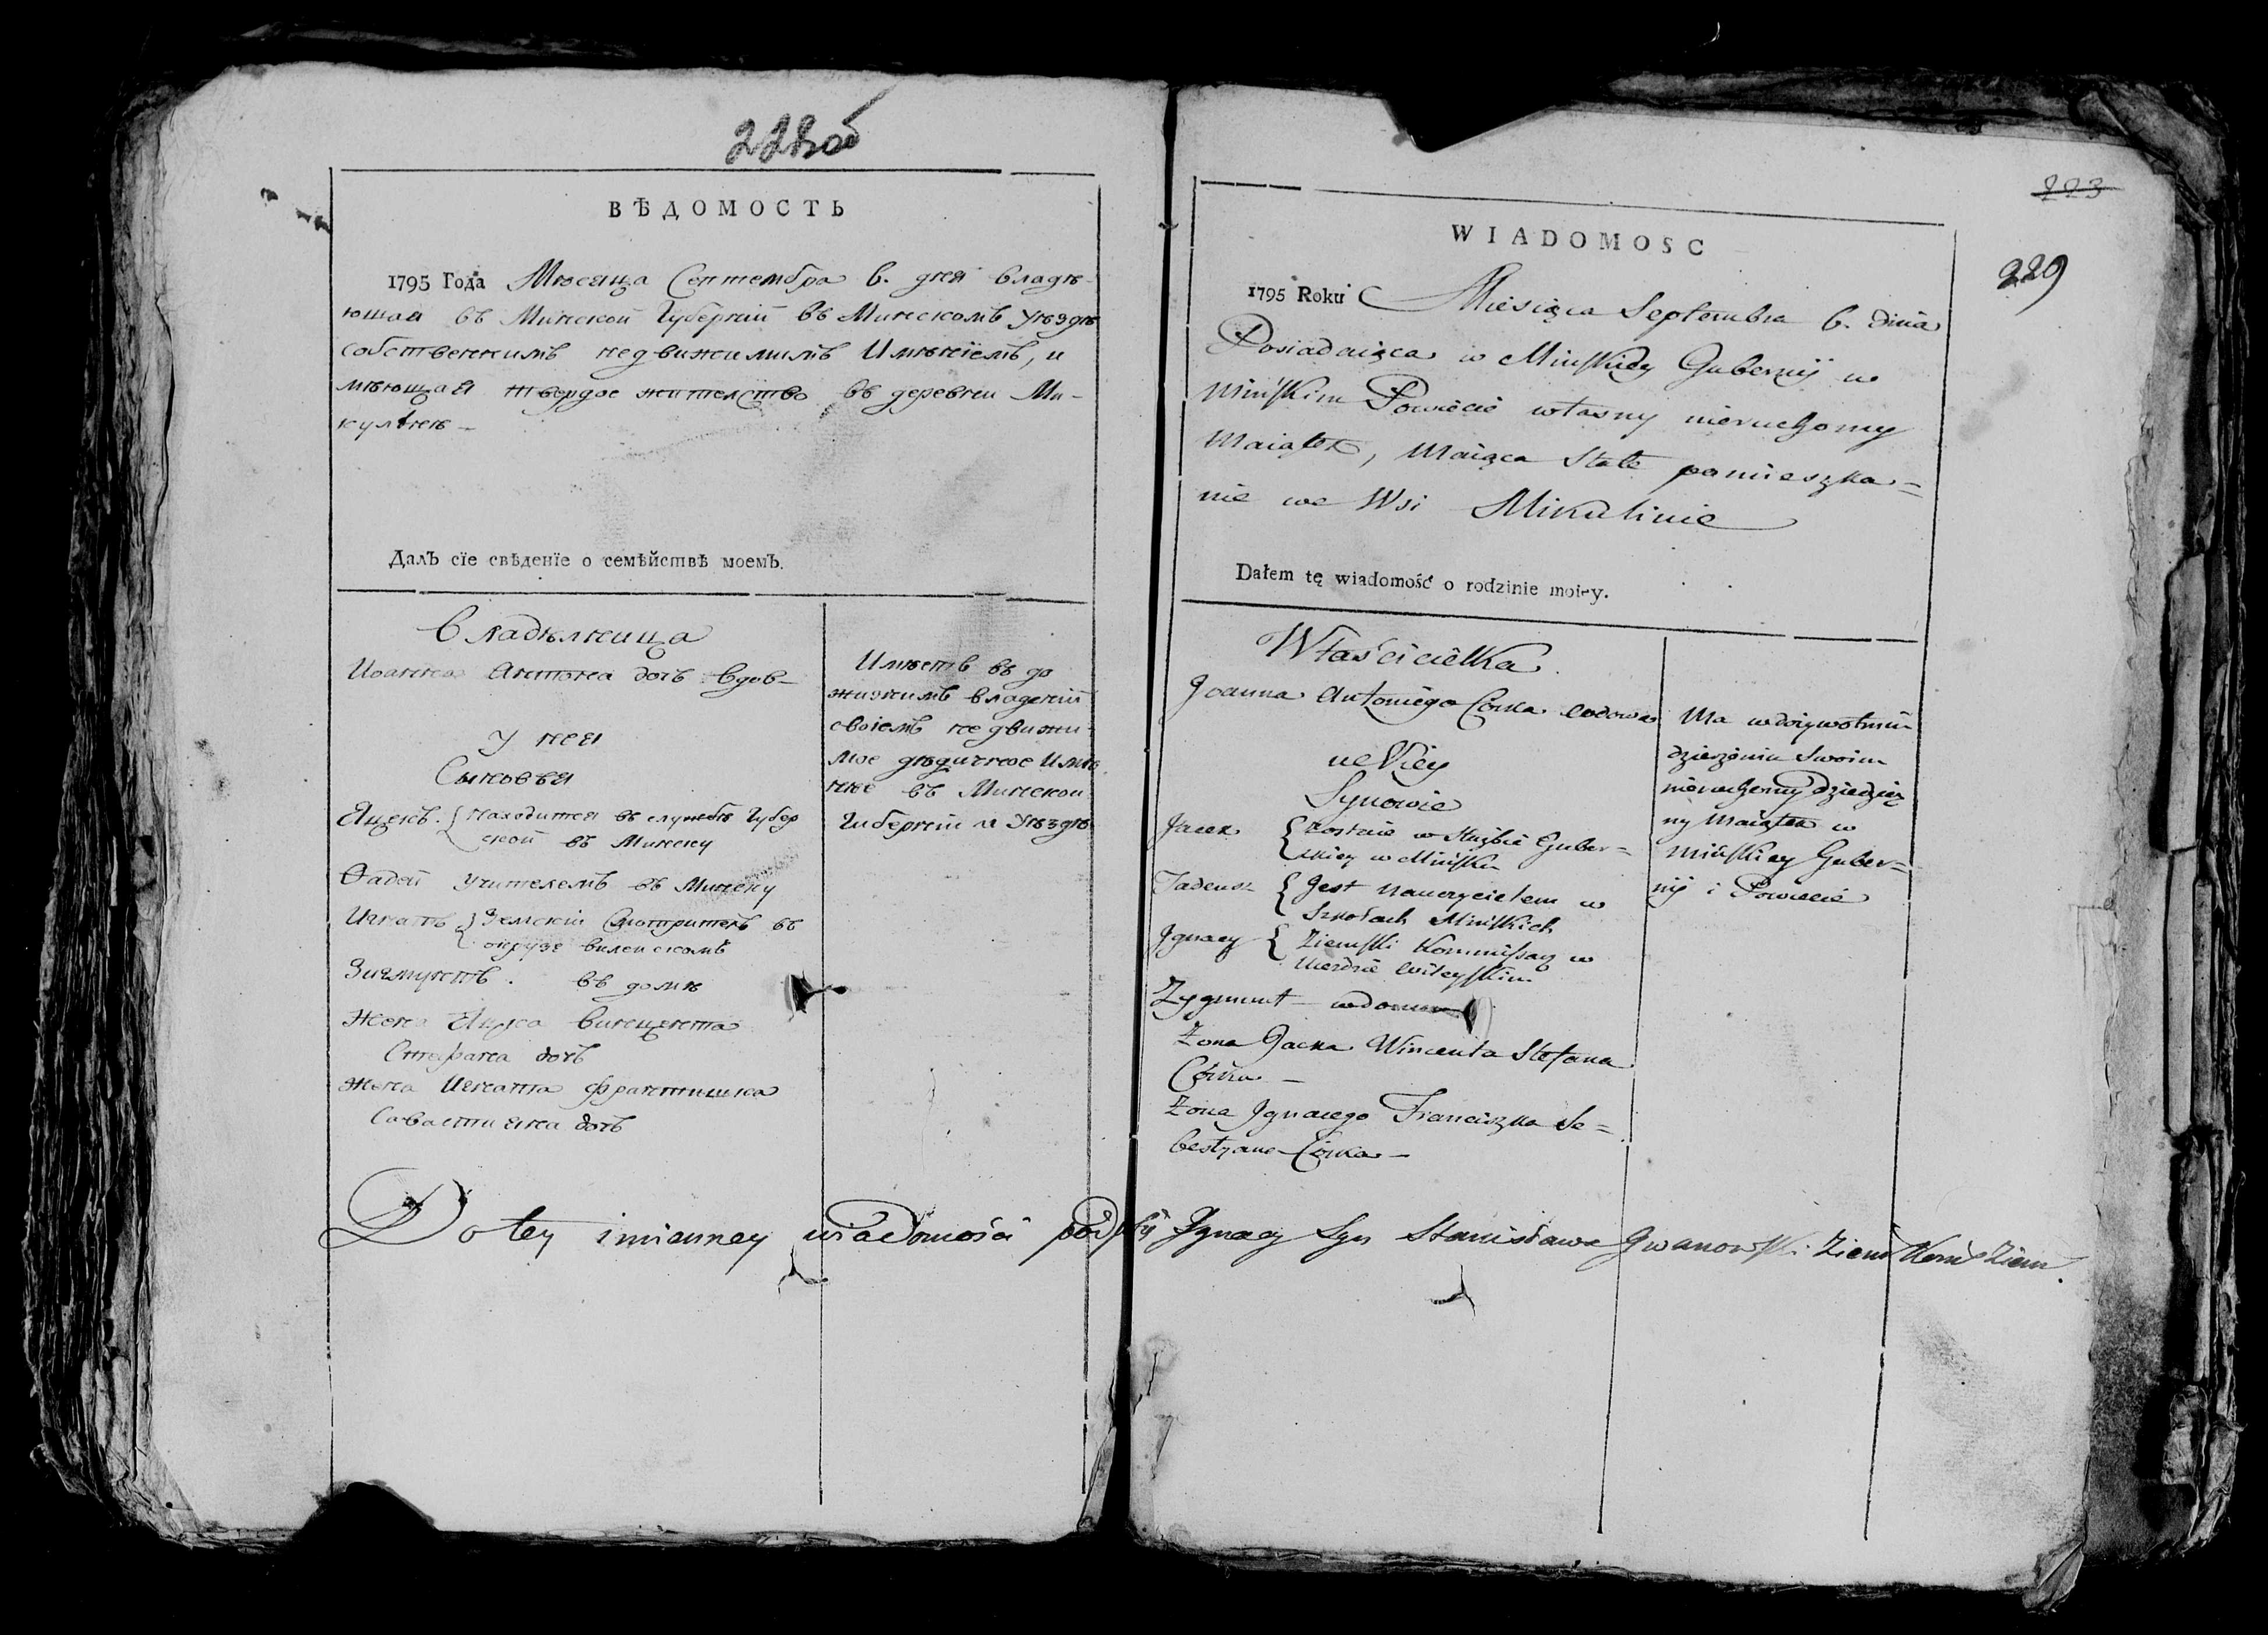 228об
ВѢДОМОСТЬ
1795 Года Мѣсяца Септембра 6. дня владѣ-
ющая въ Минской Губерніи въ Минскомъ Уѣздѣ
собственнимъ недвижимимъ Имѣніемъ, и
мѣющая твердое жителство въ деревни Ми-
кулинѣ –
ДалЪ сїе свѣденїе о семѣйствѣ моемЪ.
Владѣлница
Иоанна Антона дочь вдов-
У нея
Сыновья
Яцекъ. { находится въ службѣ Губер
ской въ Минску
Фадей Учителемъ въ Минску
Игнатъ { Земскій Смотритель въ
округе вилейскомъ
Зигмунтъ. въ домѣ
жена Яцка Винцента
Стефана дочь
жена Игната Франтишка
Савастияна дочь
Имѣетъ въ до
жизнимъ владеніи
своіемъ недвижи-
мое дѣдичное Имѣ
ніе въ Минской
Губерніи и Уѣздѣ
223
229
WIADOMOSC
1795 Roku Miesiąca Septembra 6. dnia
Posiadaiąca w Minskiey Gubernij w
Mińskim Powiecie własny nieruchomy
Maiątek, Maiąca Stałe pomieszka=
nie we Wsi Mikulinie
Dałem tę wiadomość o rodzinie moiey.
Właścicielka
Joanna Antoniego Corka wdowa
u Niey
Synowie
Jacek { zostaie w Służbie Guber=
skiey w Mińsku
Tadeusz { Jest Nauczycielem w
Szkołach Minskich
Ignacy { Ziemski Kommissarz w
Uiezdzie Wileyskim
Zygmunt – w domu
Zona Jacka Wincenta Stefana
Córka –
Zona Ignacego Franciszka Se=
bestyana Córka –
Ma w dożywotnim
dzierżeniu Swoim
nieruchomy dziedzicz
ny Maiątek w
Minskiey Guber=
nij i Powiecie
Do tey imienney wiadomości podpisał Ignacy Syn Stanisława Iwanowski Ziem Kom Ziem.